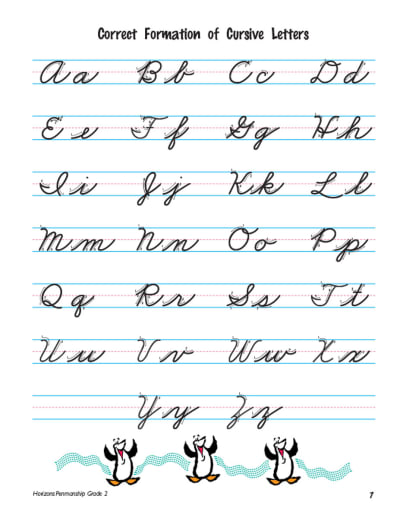 Correct Formation of Cursive Letters
Aa Bb Cc Dd
Ee Ff Gg Hh
Ii Jj Kk Ll
Mm Nn Oo Pp
Qq Rr Ss Tt
Uu Vv Ww Xx
Yy Zz
Horizons Penmanship Grade 2
7